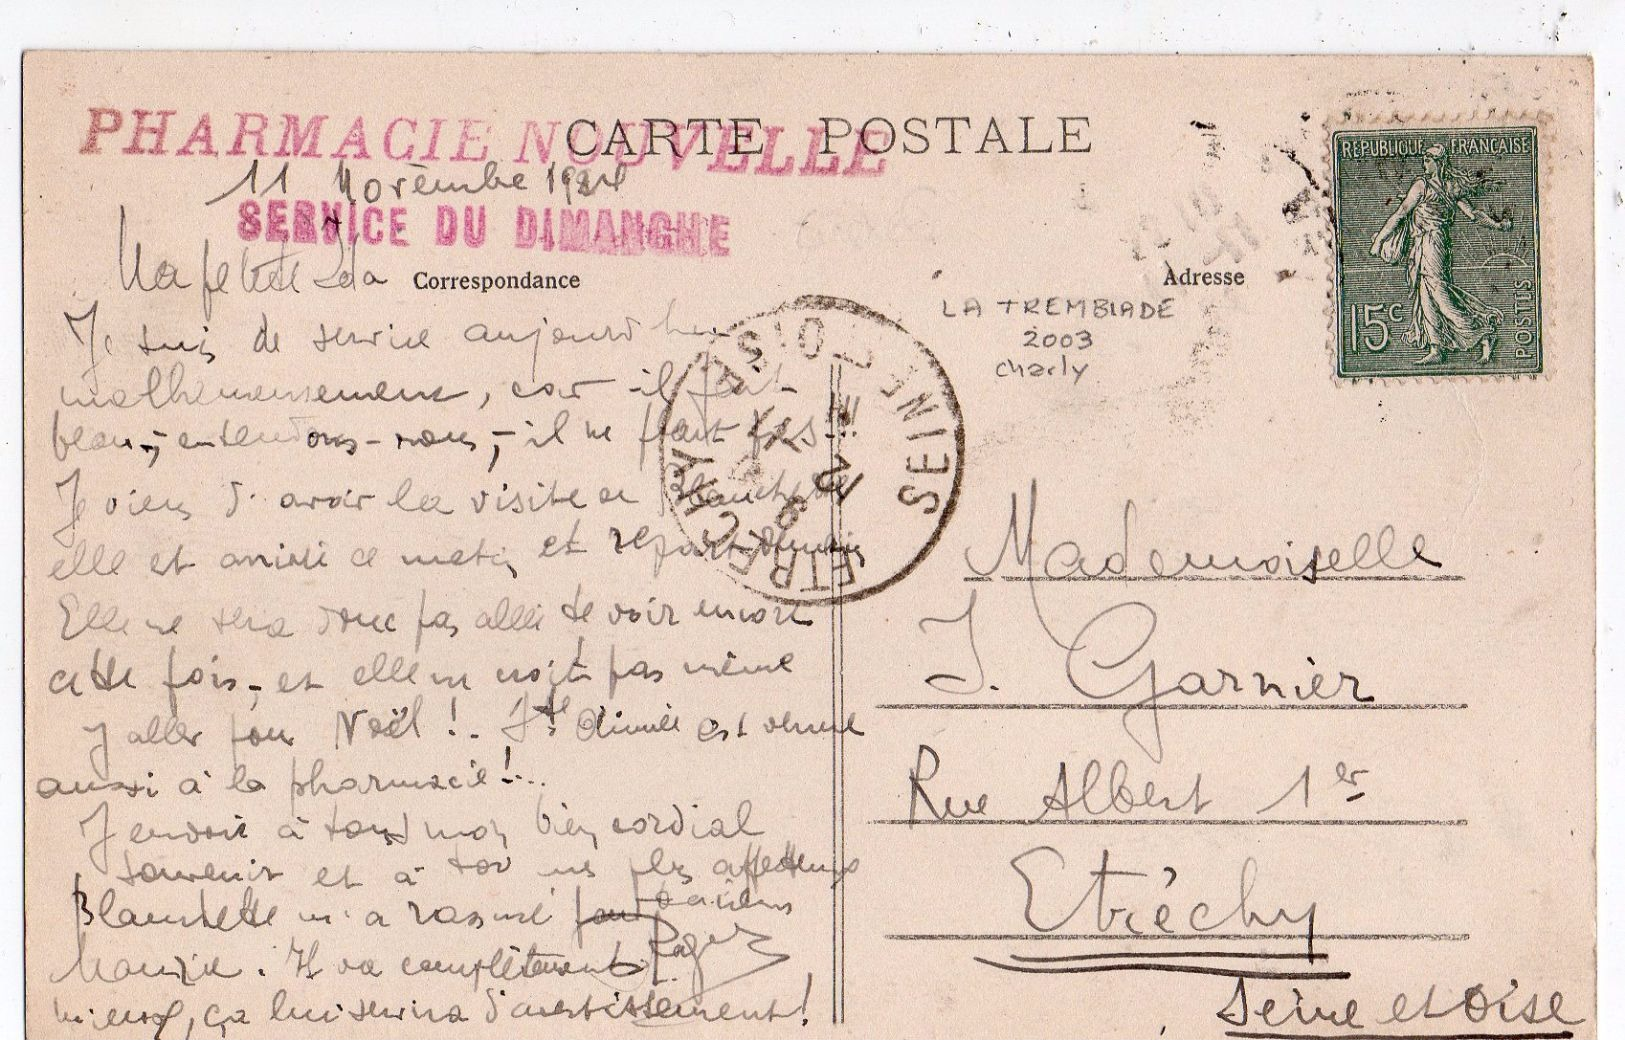 PHARMACIE NOUVELLE
CARTE POSTALE
11 Novembre 1924
SERVICE DU DIMANCHE
Ma petite Ida
Correspondance
Adresse
REPUBLIQUE FRANÇAISE
15c
POSTES
LA TREMBLADE
2003
Charly
Je suis de service aujourd'hui
malheureusement, car il fait
beau, - entendons-nous, - il ne pleut pas!!!
Je viens d'avoir la visite de Blanchette
elle est arrivée ce matin et repart demain
Elle ne sera donc pas allée te voir encore
cette fois, - et elle ne croit pas même
y aller pour Noël!.. Aimée est venue
aussi à la pharmacie!..
J'envoie à tous mon bien cordial
souvenir et à toi mes plus affectueux
baisers
Roger
Blanchette m'a rassuré pour
Maurice. Il va complètement
mieux, ça lui servira d'avertissement!
ETRECHY
SEINE-ET-OISE
Mademoiselle
I. Garnier
Rue Albert 1er
Etréchy
Seine et Oise